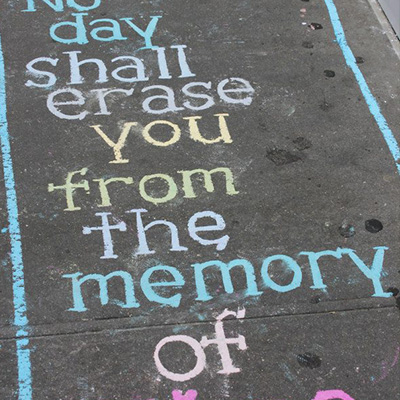 No
day
shall
erase
you
from
the
memory
of